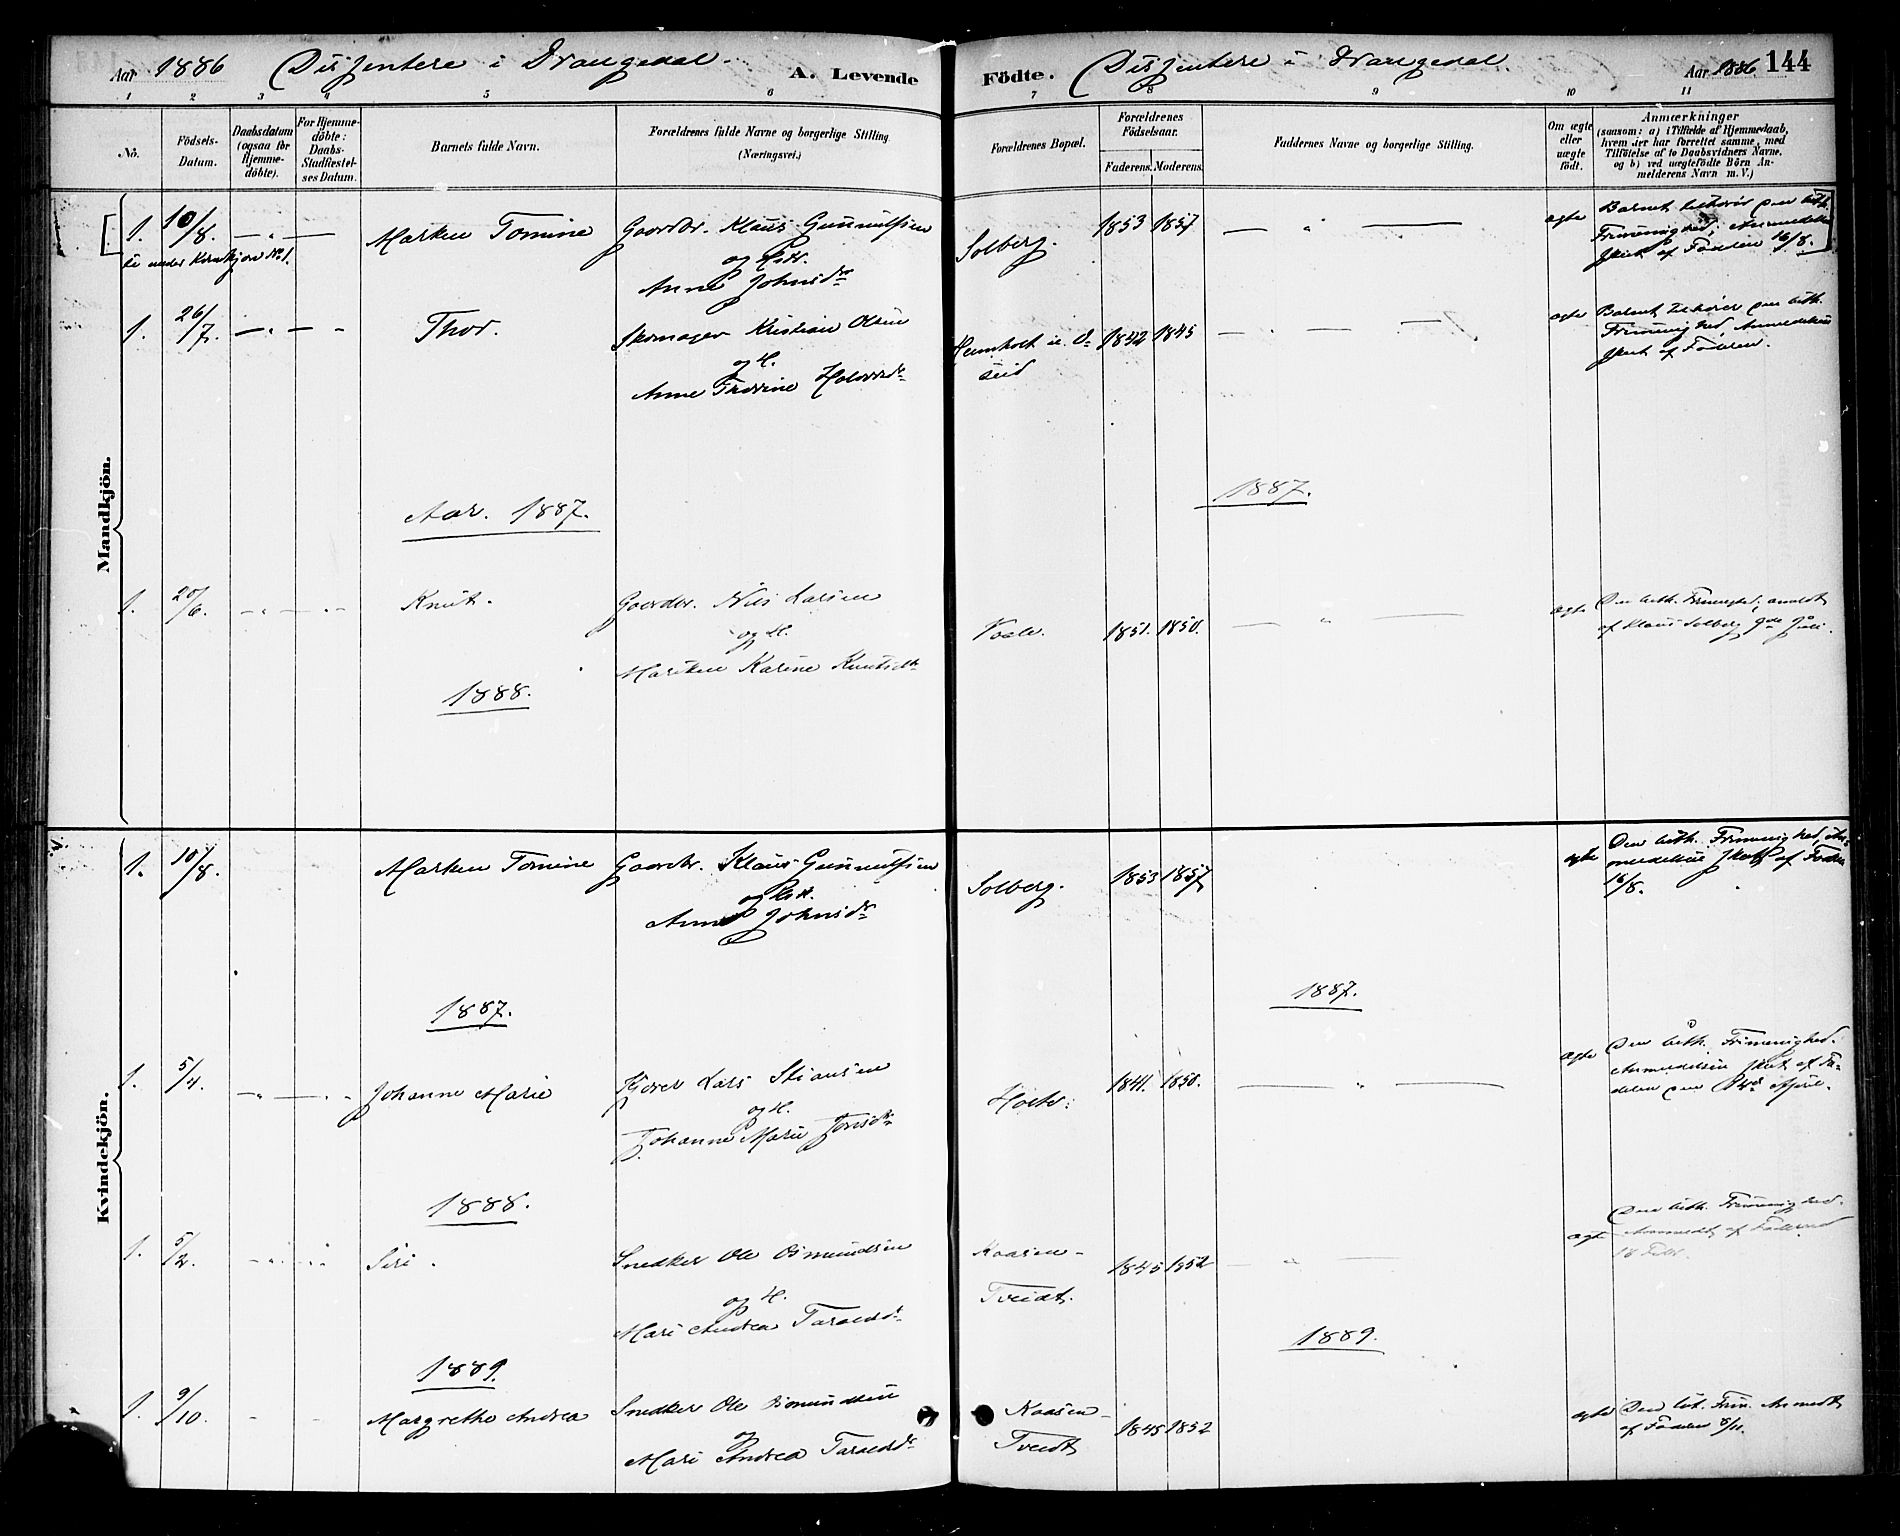 Aar 1886 Dissentere i Drangedal. A. Levende Födte. Dissentere i Drangedal. Aar 1886 144
1 2 3 4 5 6 7 8 9 10 11
No.
Födsels-
Datum.
Daabsdatum
(ogsaa for
Hjemme-
döbte).
For Hjemme-
döbte:
Daabs-
Stadfæstel-
ses Datum.
Barnets fulde Navn.
Forældrenes fulde Navne og borgerlige Stilling.
(Næringsvei.)
Forældrenes Bopæl.
Forældrenes
Födselsaar.
Faderens. Moderens.
Faddernes Navne og borgerlige Stilling.
Om ægte
eller
uægte
födt.
Anmærkninger
(saasom: a) i Tilfælde af Hjemmedaab,
hvem der har forrettet samme, med
Tilföielse af to Daabsvidners Navne.
og b) ved uægtefödte Börn An-
melderens Navn m. V.)
Mandkjön.
1. 10/8. Marken Tomine Gaardbr. Klaus Gunnulfsen
og Hstr.
Anne Johnsdr
Solberg. 1853 1857 ægte
Barnet tilhører den luth.
Frimenighed; Anmeldelse
skeet af Faderen 16/8.
se under Kvindkjøn No 1.
1. 26/7. Thor. Skomager Kristian Olsen
og H.
Anne Thorine Halvorsdr
1842 1845 ægte
Barnet tilhører den luth.
Frimenighed, Anmeldelsen
skeet af Faderen.
Aar. 1887. 1887.
1. 20/6. Knut. Gaardbr. Nils Larsen
og H.
Mariken Karine Knutsdr
Voale. 1851. 1850. ægte
Den luth. Frimenighed, anmeldt
af Klaus Solberg 9de Juli.
1888.
Kvindekjön.
1. 10/8. Marken Tomine Gaardbr. Klaus Gunnulfsen
og Hstr.
Anne Johnsdr
Solberg. 1853 1857 ægte
Den luth. Frimenighed, An-
meldelse skeet af Faderen
16/8.
1887. 1887.
1. 5/4. Johanne Marie Lars Stiansen
og H.
Johanne Marie
Holte. 1841. 1850. ægte
Den luth. Frimenighed.
Anmeldelsen skeet af Fa-
deren den 14de April.
1888.
1. 5/2. Siri. Snedker Ole Osmundsen
og H.
Mari Andrea Taraldsdr
Kaasen-
Tveidt. 1845 1852 ægte
Den luth. Frimenighed.
Anmeldt af Faderen
18 Febr.
1889 1889.
1. 9/10. Margrethe Andrea Snedker Ole Osmundsen
og
Mari Andrea Taraldsdr
Kaasen-
Tveidt 1845 1852 ægte
Den lut. Frim. Anmeldt
af Faderen 8/11.